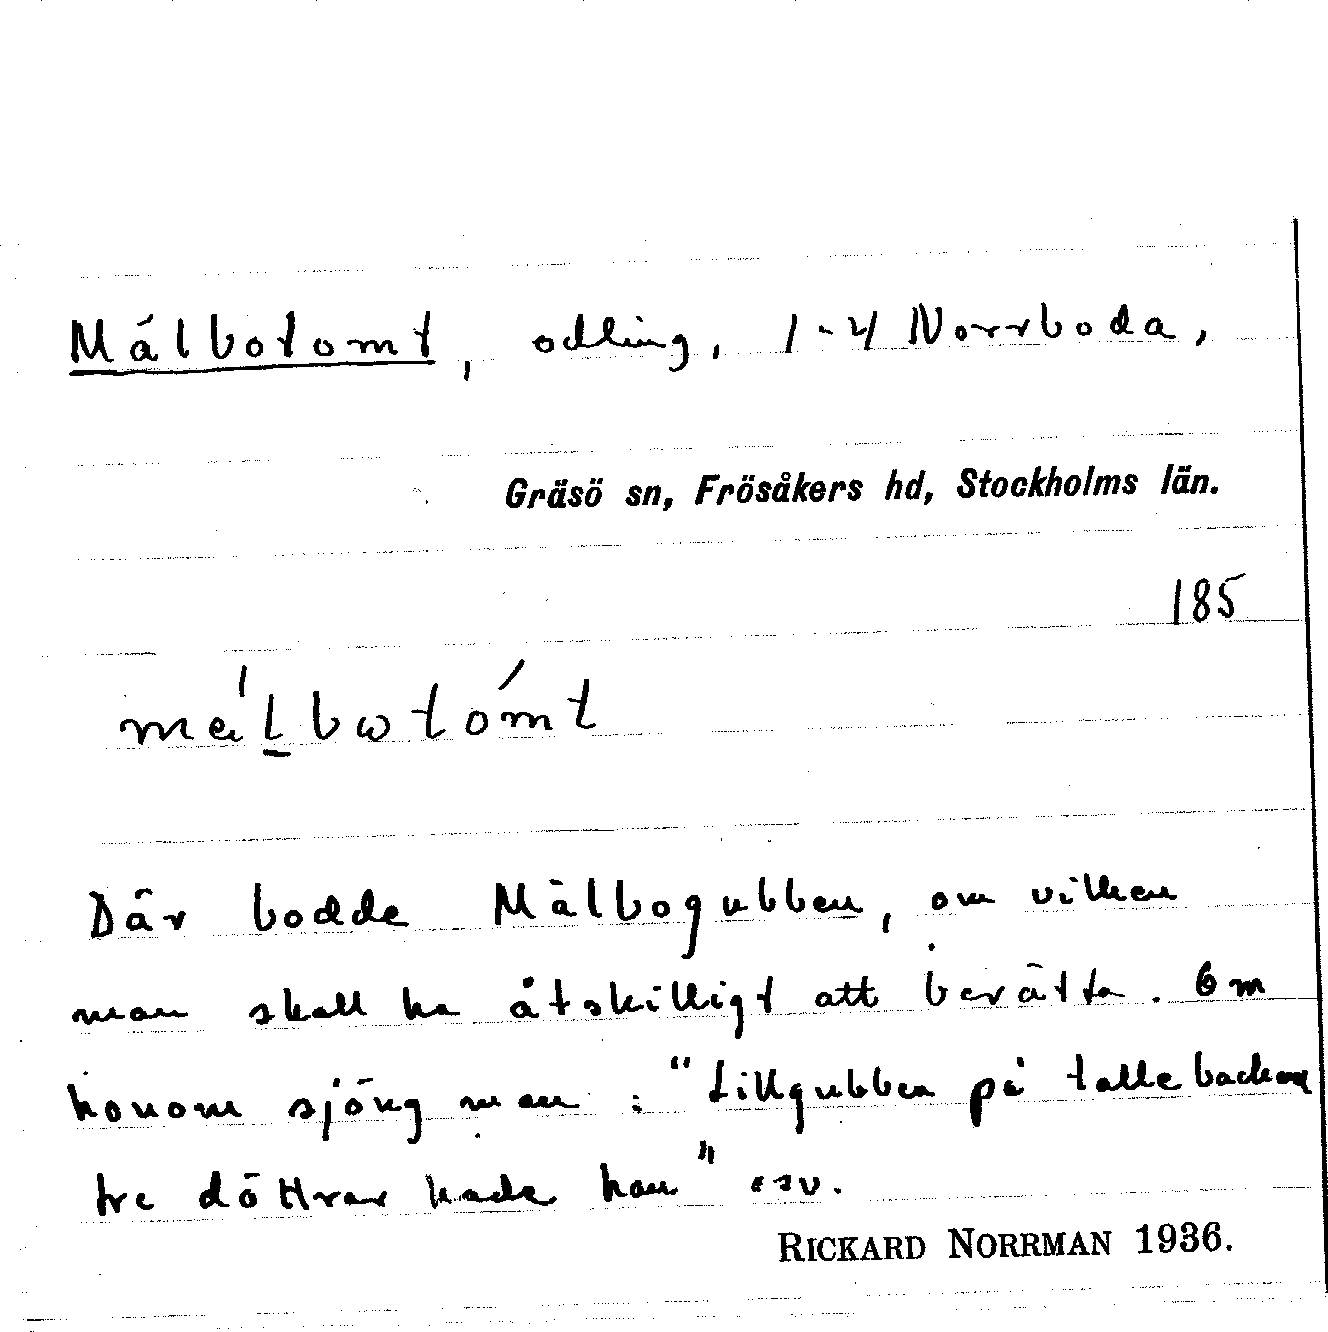 Målbotomt, odling, 1-4 Norrboda,
Gräsö sn, Frösåkers hd, Stockholms län.
185
Där bodde Målbogubben, om vilken
man skall ha åtskilligt att berätta. Om
honom sjöng man: "Lillgubben på tallebacken
tre döttrar hade han" osv.
RICKARD NORRMAN 1936.